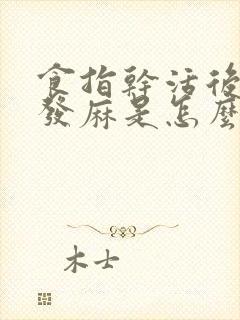 食指幹活後
發麻是怎麼
木士